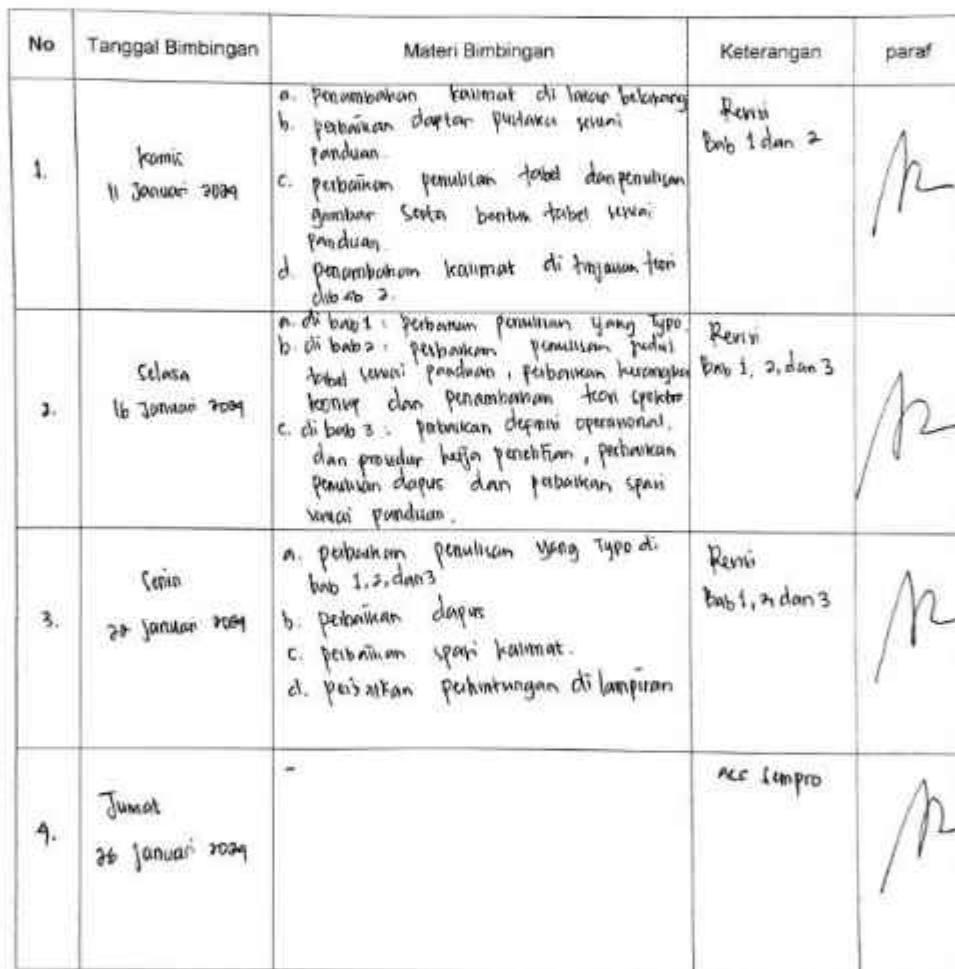 No Tanggal Bimbingan Materi Bimbingan Keterangan paraf
1.
Kamis
11 Januari 2024
a. Penambahan kalimat di latar belakang
b. perbaikan daftar pustaka sesuai
panduan.
c. perbaikan penulisan tabel dan penulisan
gambar serta bentuk tabel sesuai
panduan.
d. penambahan kalimat di tinjauan teori
di bab 2.
Revisi
Bab 1 dan 2
2.
Selasa
16 Januari 2024
a. di bab 1 : perbaikan penulisan yang Typo
b. di bab 2 : perbaikan penulisan judul
tabel sesuai panduan, perbaikan kerangka
konsep dan penambahan teori
c. di bab 3 : perbaikan definisi operasional,
dan prosedur kerja penelitian, perbaikan
penulisan dapus dan perbaikan spasi
sesuai panduan.
Revisi
Bab 1, 2, dan 3
3.
Senin
22 Januari 2024
a. perbaikan penulisan yang Typo di
bab 1, 2, dan 3
b. perbaikan dapus
c. perbaikan spasi kalimat.
d. perbaikan perhintungan di lampiran
Revisi
Bab 1, 2, dan 3
4.
Jumat
26 Januari 2024
-
ACC Sempro